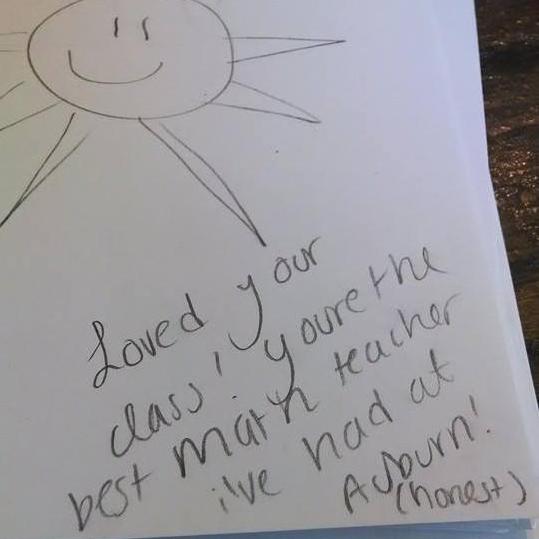 Loved your
class! youre the
best math teacher
i've had at
Auburn!
(honest)